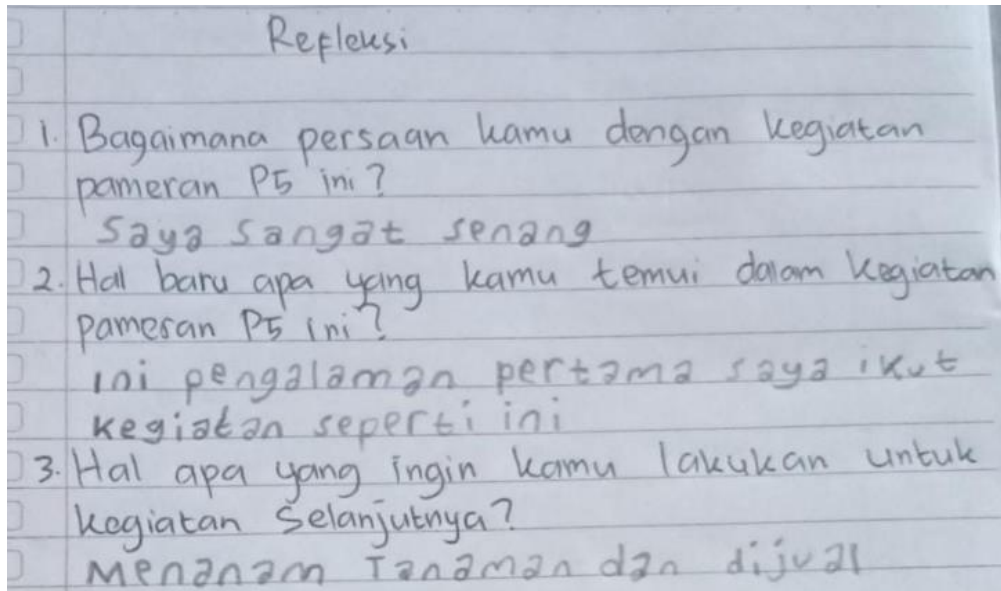 Refleksi
1. Bagaimana persaan kamu dengan kegiatan
pameran P5 ini?
Saya sangat senang
2. Hal baru apa yang kamu temui dalam kegiatan
pameran P5 ini?
ini pengalaman pertama saya ikut
kegiatan seperti ini
3. Hal apa yang ingin kamu lakukan untuk
kegiatan Selanjutnya?
Menanam Tanaman dan dijual